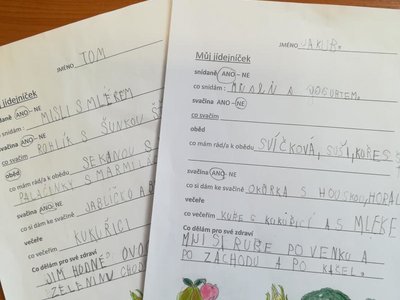 JMÉNO TOM
Můj jídelníček
snídaně ANO – NE
co snídám: MISLI S MLÉKEM
svačina ANO – NE
co svačím ROHLÍK S ŠUNKOU
oběd
co mám rád/a k obědu SEKANOU S
PALAČINKY S
svačina ANO – NE
co si dám ke svačině JABLÍČKO A
večeře
co večeřím KUKUŘICI
Co dělám pro své zdraví
JÍM HODNĚ OVO
ZELENINU CHOD
JMÉNO JAKUB.
Můj jídelníček
snídaně ANO – NE
co snídám: S JOGURTEM.
svačina ANO – NE
co svačím
oběd
co mám rád/a k obědu SVÍČKOVÁ, SUŠI,
svačina ANO – NE
co si dám ke svačině OKURKA S HOUSKOU,
večeře
co večeřím KUŘE S KUKUŘICÍ A S MLÉKE
Co dělám pro své zdraví
MIJI SI RUCE PO VENKU A
PO ZÁCHODU A PO KAŠEL.